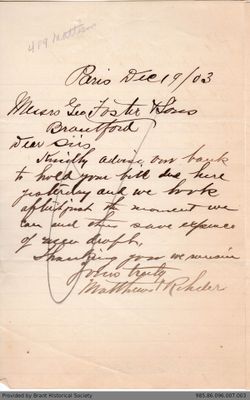 Paris Dec 19/03
Messrs Geo Foster & Sons
Brantford
Dear Sirs
Kindly advise our bank
to hold your bill due here
yesterday and we look
after just the moment we
can and thus save expense
of new draft,
Thanking you we remain
Yours truly
Provided by Brant Historical Society
985.86.096.007.003